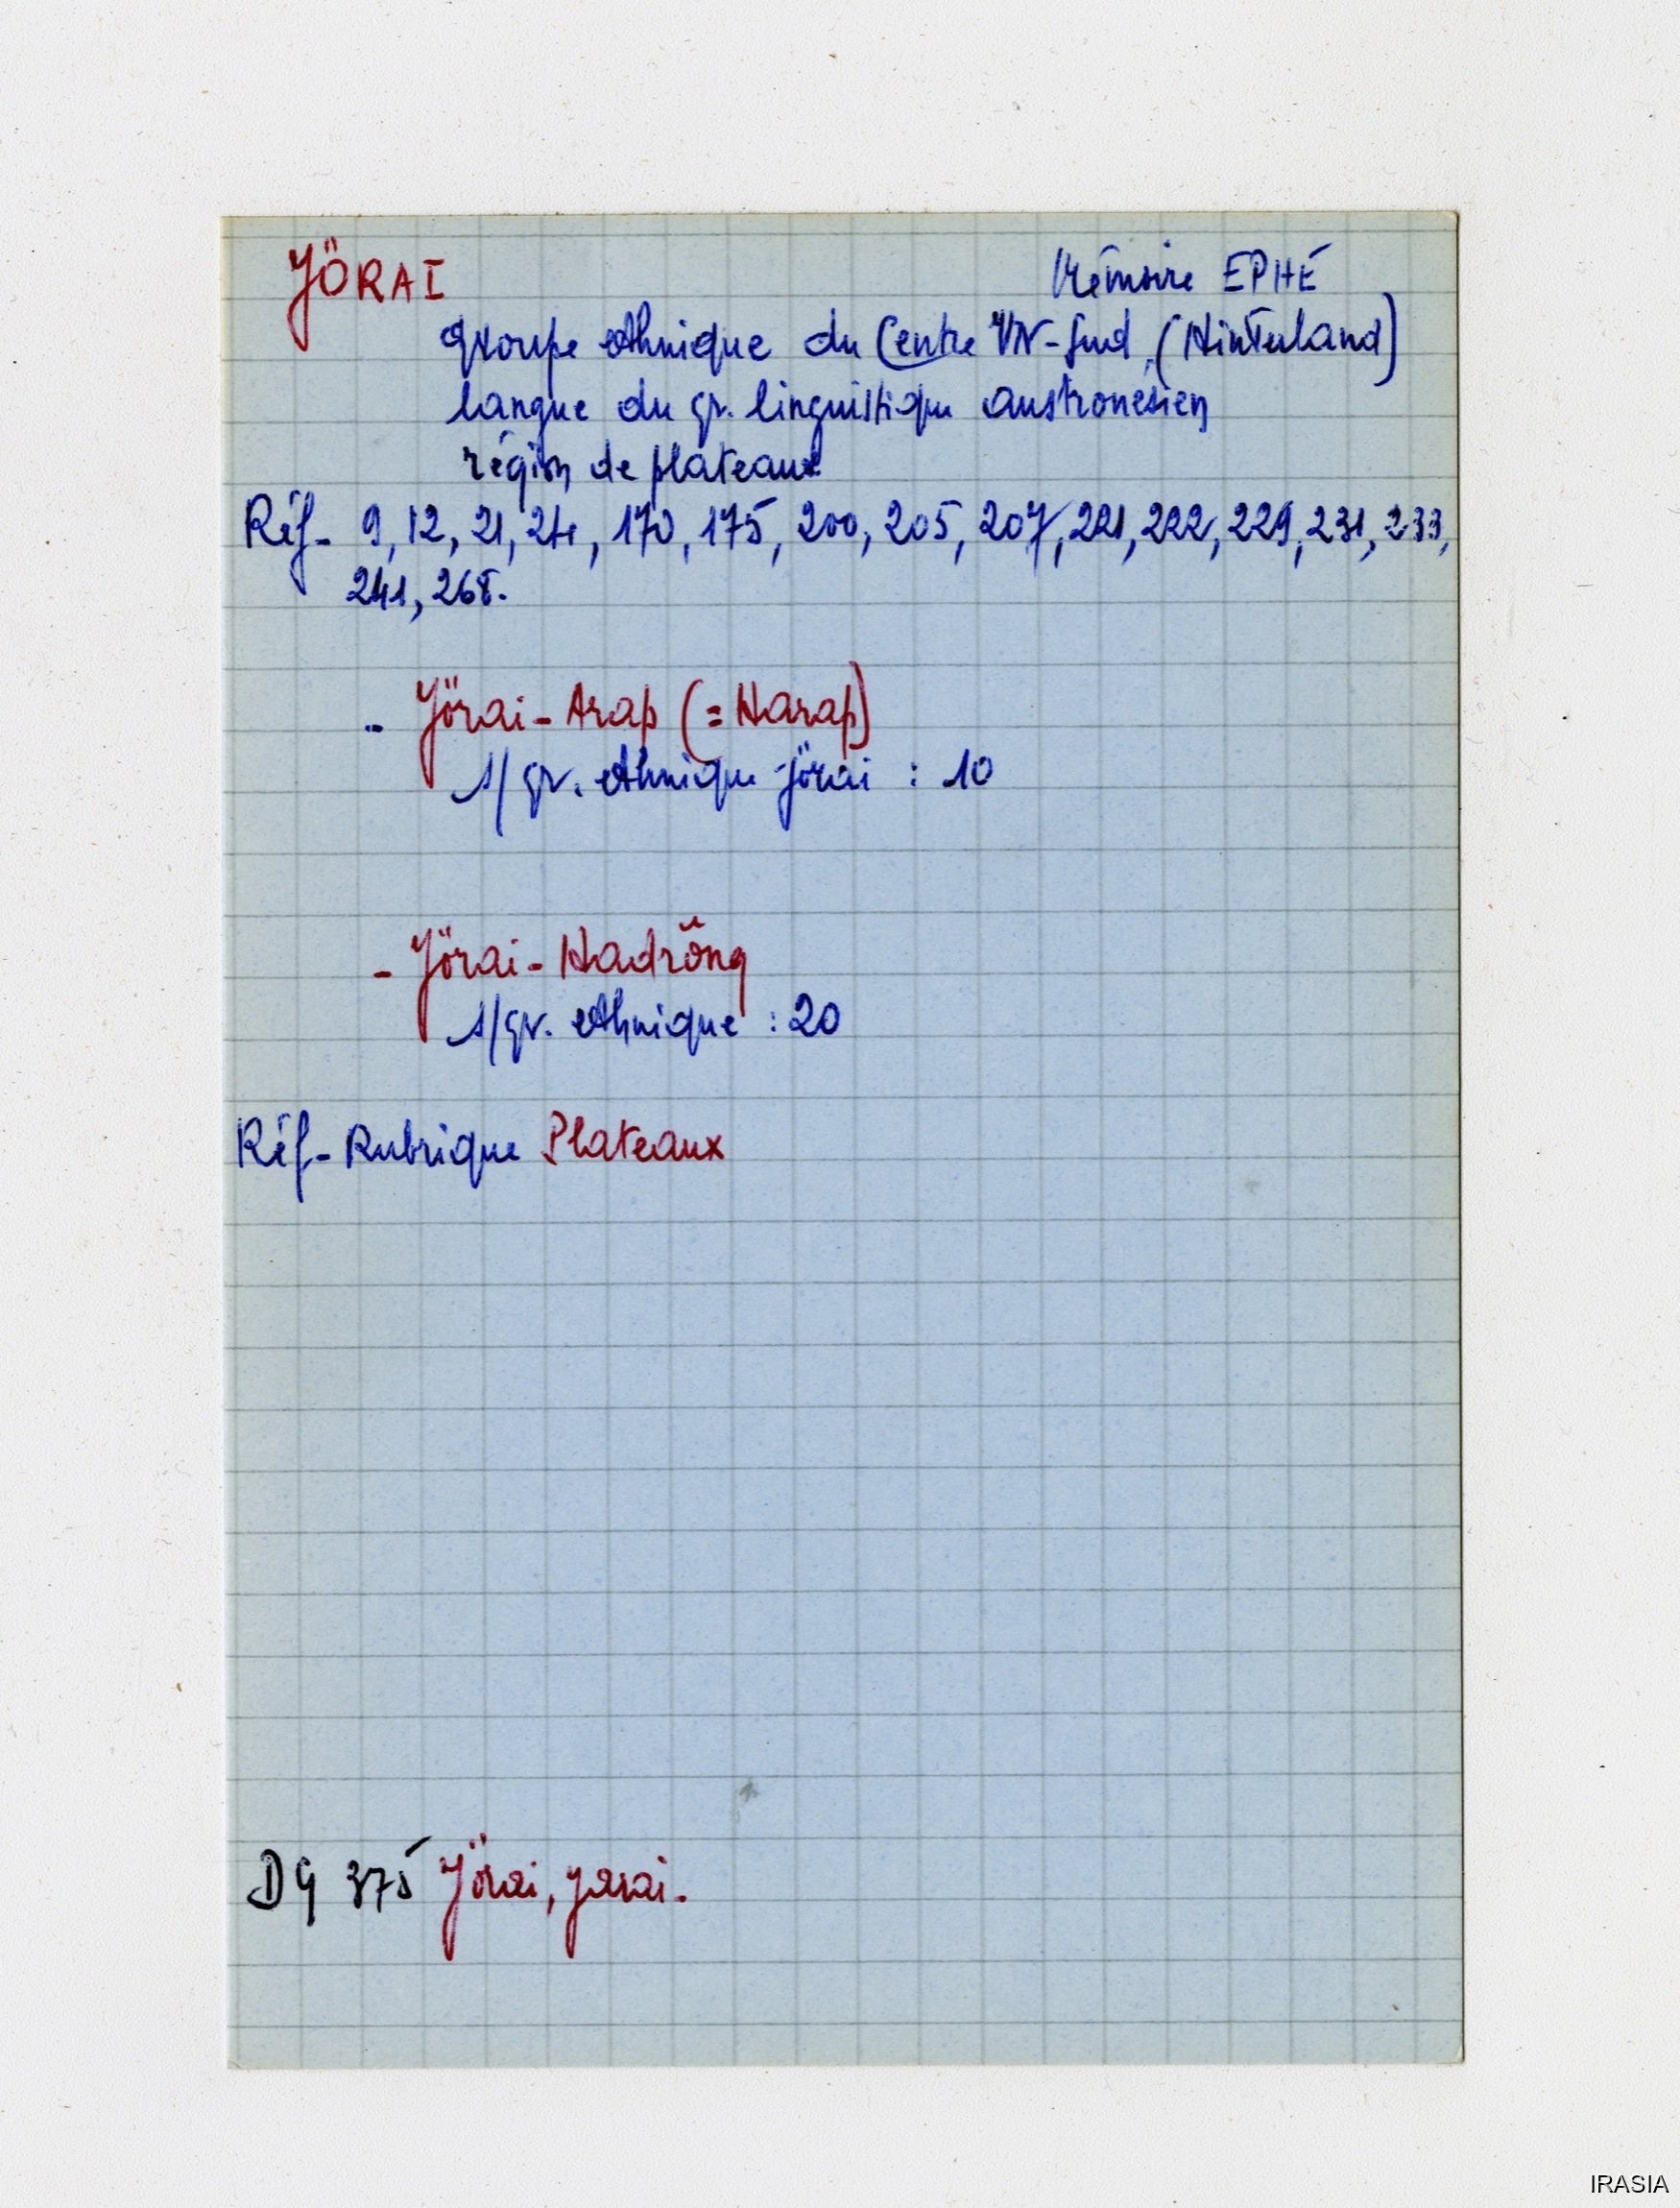 JÖRAI
Mémoire EPHE
groupe ethnique du Centre VN-Sud (Hinterland)
langue du gr. linguistique austronésien
région de plateaux
Réf- 9, 12, 21, 24, 170, 175, 200, 205, 207, 221, 222, 229, 231, 233,
241, 268.
- Jörai-Arap (= Harap)
s/gr. ethnique jörai : 10
- Jörai-Hadrŏng
s/gr. ethnique : 20
Réf- Rubrique Plateaux
375 Jörai, jarai.
IRASIA